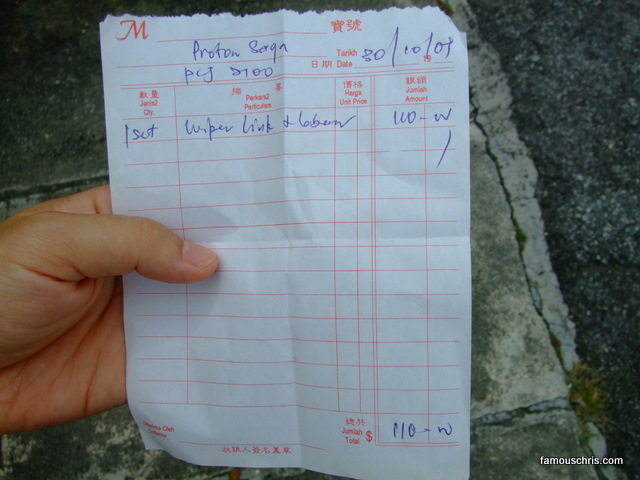 M 寶號
Proton Saga
Tarikh
日期 Date 30/10/09
19
數量 Jenis2 Qty.
摘要 Perkara2 Particulars
價格 Harga Unit Price
銀額 Jumlah Amount
1 set wiper link & labour 110-00
總共 Jumlah Total $ 110-00
Diterima Oleh
收銀人簽名蓋章
famouschris.com